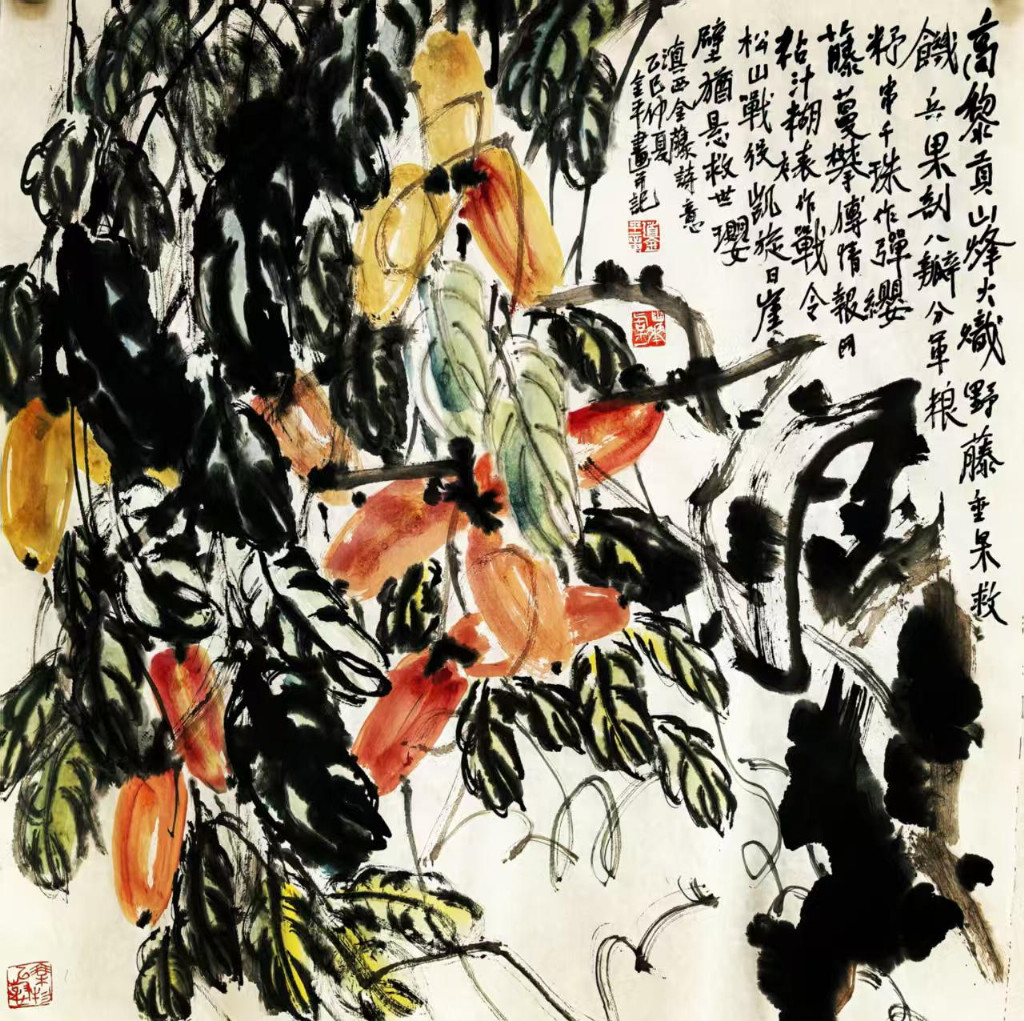 高黎貢山烽火熾野藤垂果救
饑兵果剖八瓣分軍粮
籽串千珠作彈纓
藤蔓攀傳情報网
粘汁糊裱作戰令
松山戰役凱旋日崖
壁猶悬救世瓔
滇西金藤詩意
乙巳仲夏
金平畫并記